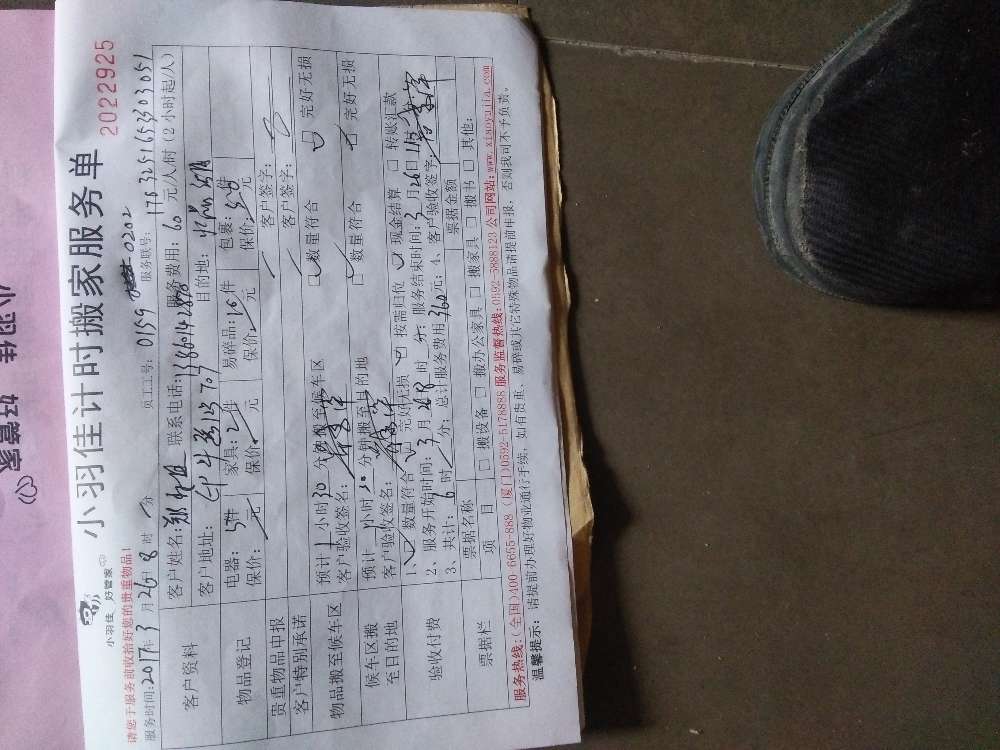 小羽佳计时搬家服务单
2022925
小羽佳 好管家
请您于服务前收拾好您的贵重物品！
员工工号：0159 0202 服务联号：
服务时间：2017年3月26日8时 分 服务费用：60元/人/时（2小时起/人）
客户资料
客户姓名：郑 联系电话：
客户地址： 目的地：
物品登记
电器：5件 家具：2件 易碎品：10件 包裹：50件
保价： 元 保价： 元 保价： 元 保价： 元
贵重物品申报 客户签字：
客户特别承诺 客户签字：
物品搬至候车区
预计1小时30分钟搬至候车区 数量符合 完好无损
客户验收签名：
候车区搬至目的地
预计1小时30分钟搬至目的地 数量符合 完好无损
客户验收签名：
验收付费
1、 数量符合 完好无损 按需归位 现金结算 转账汇款
2、服务开始时间：3月26日8时 分；服务结束时间：3月26日11时
3、共计：6时 分；总计服务费用360元；4、客户验收签字：
票据栏
票据名称 票据金额
项目 搬设备 搬办公家具 搬家具 搬书 其他：
服务热线：（全国）400-6655-888 （厦门）0592-5178888 服务监督热线：0592-5888123 公司网站：www.xiaoyujia.com
温馨提示：请提前办理好物业通行手续，如有贵重、易碎或其它特殊物品请提前申报，否则我司可不予负责。